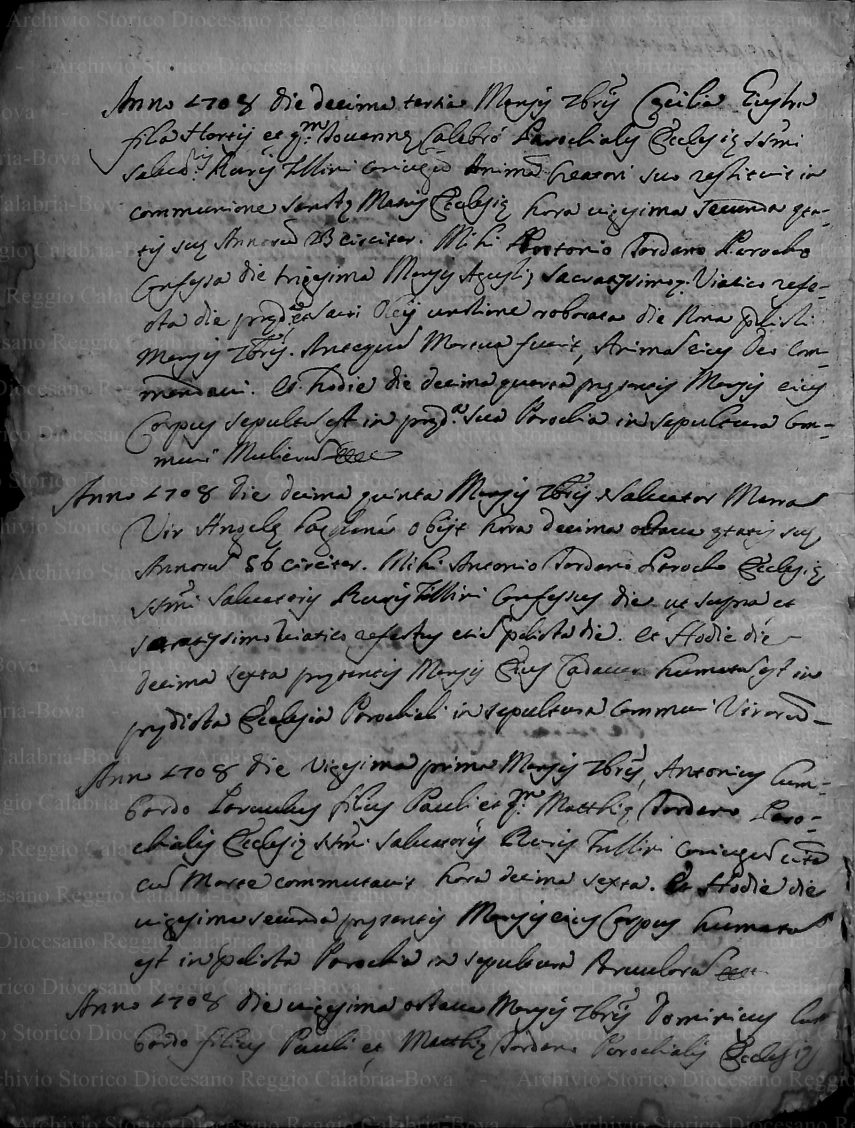 Anno 1708 die decima tertia Mensis 7bris Cecilia
filia et qm Joannę Calabrò Parochialis Ecclesię SSmi
Salvris Ruris Tllini coniugū Animā Creatori suo restituit in
communione Sanctę Matris Ecclesię hora vigesima secunda ęta-
tis suę Annorū 23 circiter. Mihi Antonio Tordano Parocho
Confessa die trigesima Mensis Sacratissimoq. Viatico refe-
cta die pręd. et sacri Olei unctione roborata die Nona pdicti
Mensis 7bris. Antequā Mortua fuerit, Animā eius Deo Com-
mendavi. Et hodie die decima quarta pręsentis Mensis eius
Corpus sepultū est in pręd.a sua Parochia in sepultura Com-
muni Mulierū
Anno 1708 die decima quinta Mensis 7bris Salvator Marra
Vir Angelę obijt hora decima octava ętatis suę
Annorū 56 circiter. Mihi Antonio Tordano Parocho Ecclesię
SSmi Salvatoris Ruris Tllini Confessus die ut supra et
sacratissimo Viatico refectus etiā pdicta die. Et Hodie die
decima sexta pręsentis Mensis Eius Cadaver humatū est in
prędicta Ecclesia Parochiali in sepultura communi Virorū
Anno 1708 die Vigesima prima Mensis 7bris, Antonius Lum-
bardo Parvulus filius Pauli et qm Matthię Tordano Paro-
chialis Ecclesię SSmi Salvatoris Ruris Tullini coniugū vitā
cū Morte commutavit hora decima sexta. Et Hodie die
vigesima secunda pręsentis Mensis eius Corpus humatū
est in pdicta Parochia in sepultura Parvulorū
Anno 1708 die vigesima octava Mensis 7bris Dominicus Lum
bardo filius Pauli et Matthię Tordano Parochialis Ecclesię